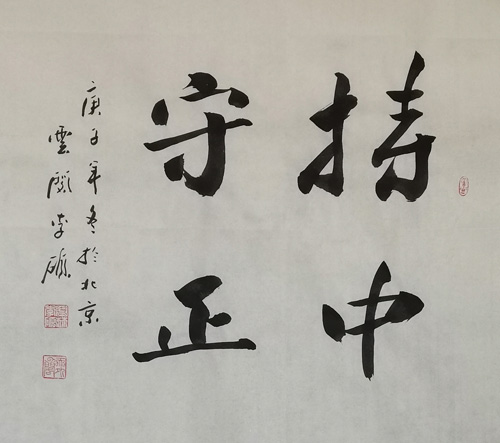 持中
守正
庚子年冬於北京
雲李